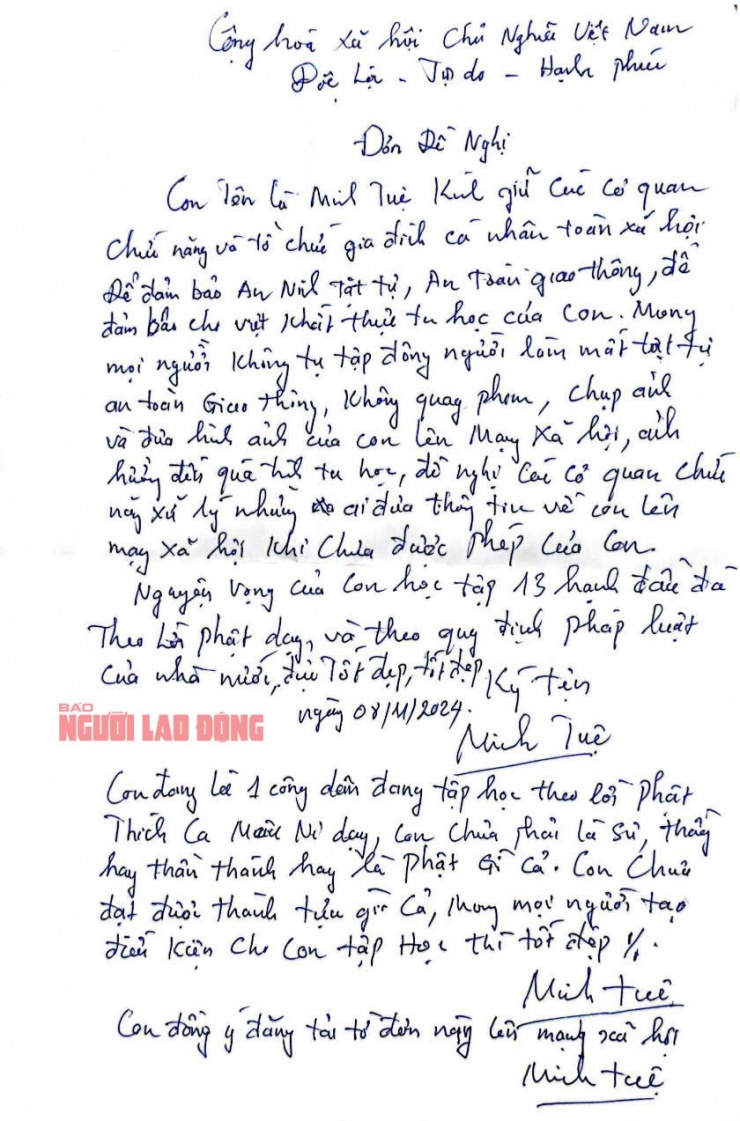 Cộng hoà xã hội chủ Nghĩa Việt Nam
Độc Lập - Tự do - Hạnh phúc
Đơn Đề Nghị
Con Tên là Minh Tuệ Kính giử Các cơ quan
chức năng và tổ chức gia đình cá nhân toàn xã hội
Để đảm bảo An Ninh Trật tự, An Toàn giao thông, để
đảm bảo cho việt Khất thực tu học của Con. Mong
mọi người Không tụ tập đông người làm mất trật tự
an toàn Giao thông, Không quay phim, chụp ảnh
và đưa hình ảnh của con lên Mạng Xã hội, ảnh
hưởng đến quá trình tu học, đề nghị Các cơ quan chức
năng xử lý những ai đưa thông tin về con lên
mạng xã hội Khi Chưa được phép Của Con.
Nguyện Vọng của Con học tập 13 hạnh đầu đà
Theo Lời phật dạy, và theo quy định pháp luật
Của nhà nước, được Tốt đẹp, tốt đẹp
Ký tên
ngày 08/11/2024.
BÁO
NGƯỜI LAO ĐỘNG
Minh Tuệ
Con đang là 1 công dân đang tập học theo lời phật
Thích Ca Mâu Ni dạy, con chưa phải là Sư, thầy
hay thần thánh hay là phật Gì cả. Con Chưa
đạt được thành tựu gì Cả, mong mọi người tạo
điều Kiện Cho Con tập Học thì tốt đẹp %.
Minh tuệ
Con đồng ý đăng tải tờ đơn này lên mạng xã hội
Minh tuệ